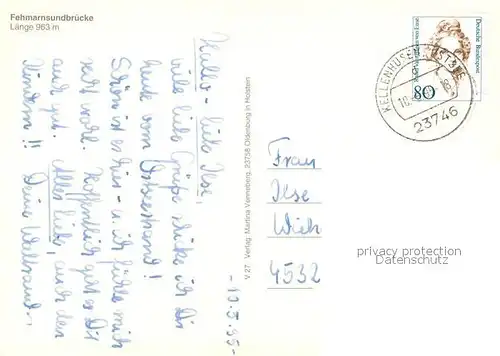 Fehmarnsundbrücke
Länge 963 m
Hallo - liebe Ilse,
viele liebe Grüße schicke ich Dir
heute vom Ostseestrand!
Schön ist es hier - u. ich fühle mich
sehr wohl. Hoffentlich geht es Dir
auch gut. Alles liebe, auch den
Kindern!! Deine Waltraud.
-10.5.95-
V 27 Verlag Martina Venneberg, 23758 Oldenburg in Holstein
Deutsche Bundespost
80
KELLENHUSEN
23746
Frau
Ilse
4532
privacy protection
Datenschutz